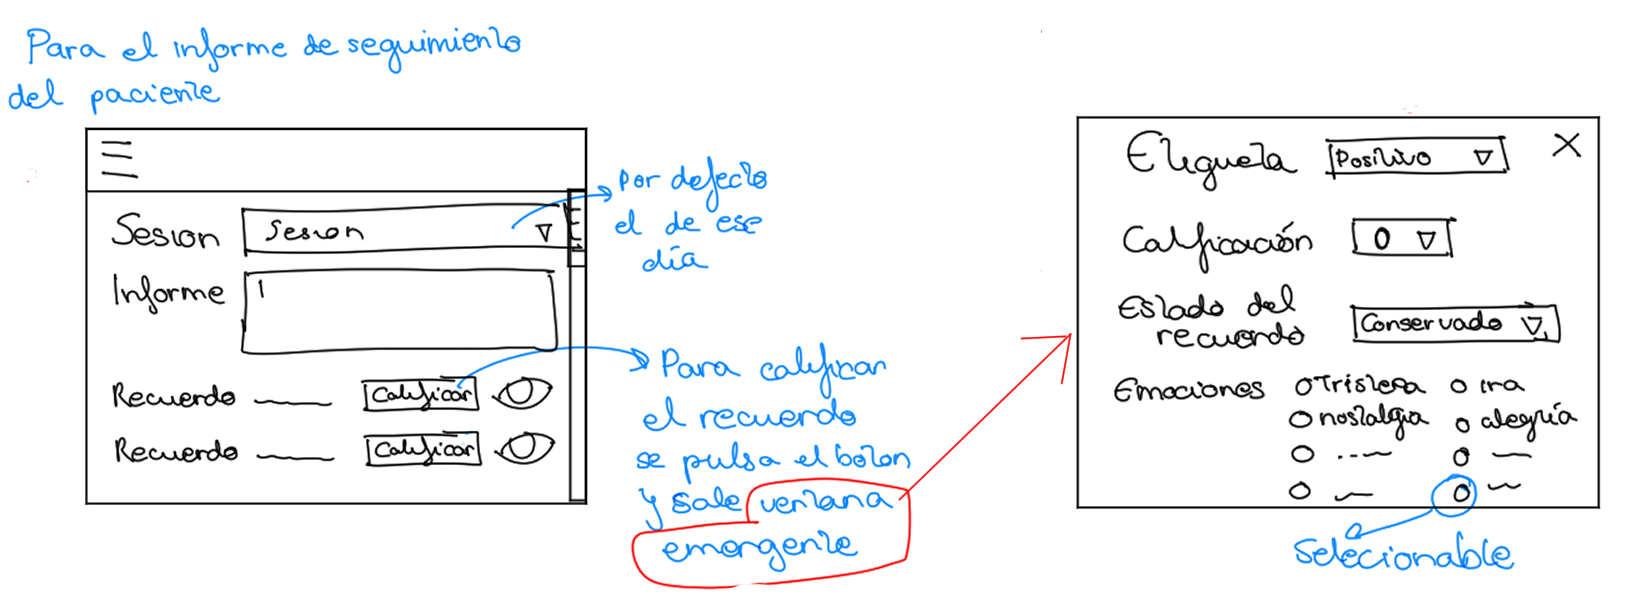 Para el informe de seguimiento
del paciente
Sesion Sesion
Informe
Recuerdo Calificar
Recuerdo Calificar
por defecto
el de ese
día
Para calificar
el recuerdo
se pulsa el boton
y sale ventana
emergente
Etiqueta Positivo X
Calificación 0
Estado del
recuerdo Conservado
Emociones Tristeza ira
nostalgia alegría
Selecionable